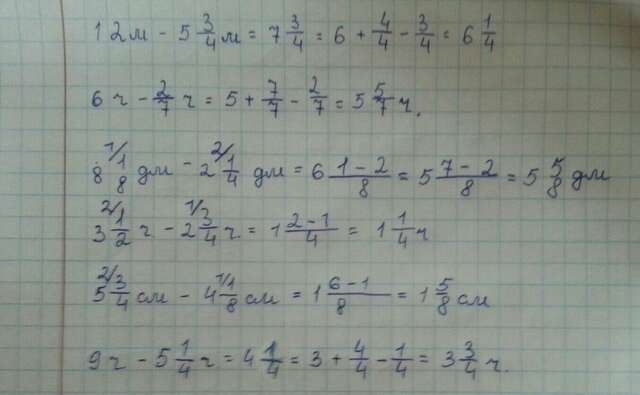 12 м - 5 3/4 м = 7 3/4 = 6 + 4/4 - 3/4 = 6 1/4
6 ч - 2/7 ч = 5 + 7/7 - 2/7 = 5 5/7 ч.
8 1/ 1/8 дм - 2 2/ 1/4 дм = 6 (1-2)/8 = 5 (7-2)/8 = 5 5/8 дм
3 2/ 1/2 ч - 2 1/ 3/4 ч = 1 (2-1)/4 = 1 1/4 ч
5 2/ 3/4 см - 4 1/ 1/8 см = 1 (6-1)/8 = 1 5/8 см
9 ч - 5 1/4 ч = 4 1/4 = 3 + 4/4 - 1/4 = 3 3/4 ч.